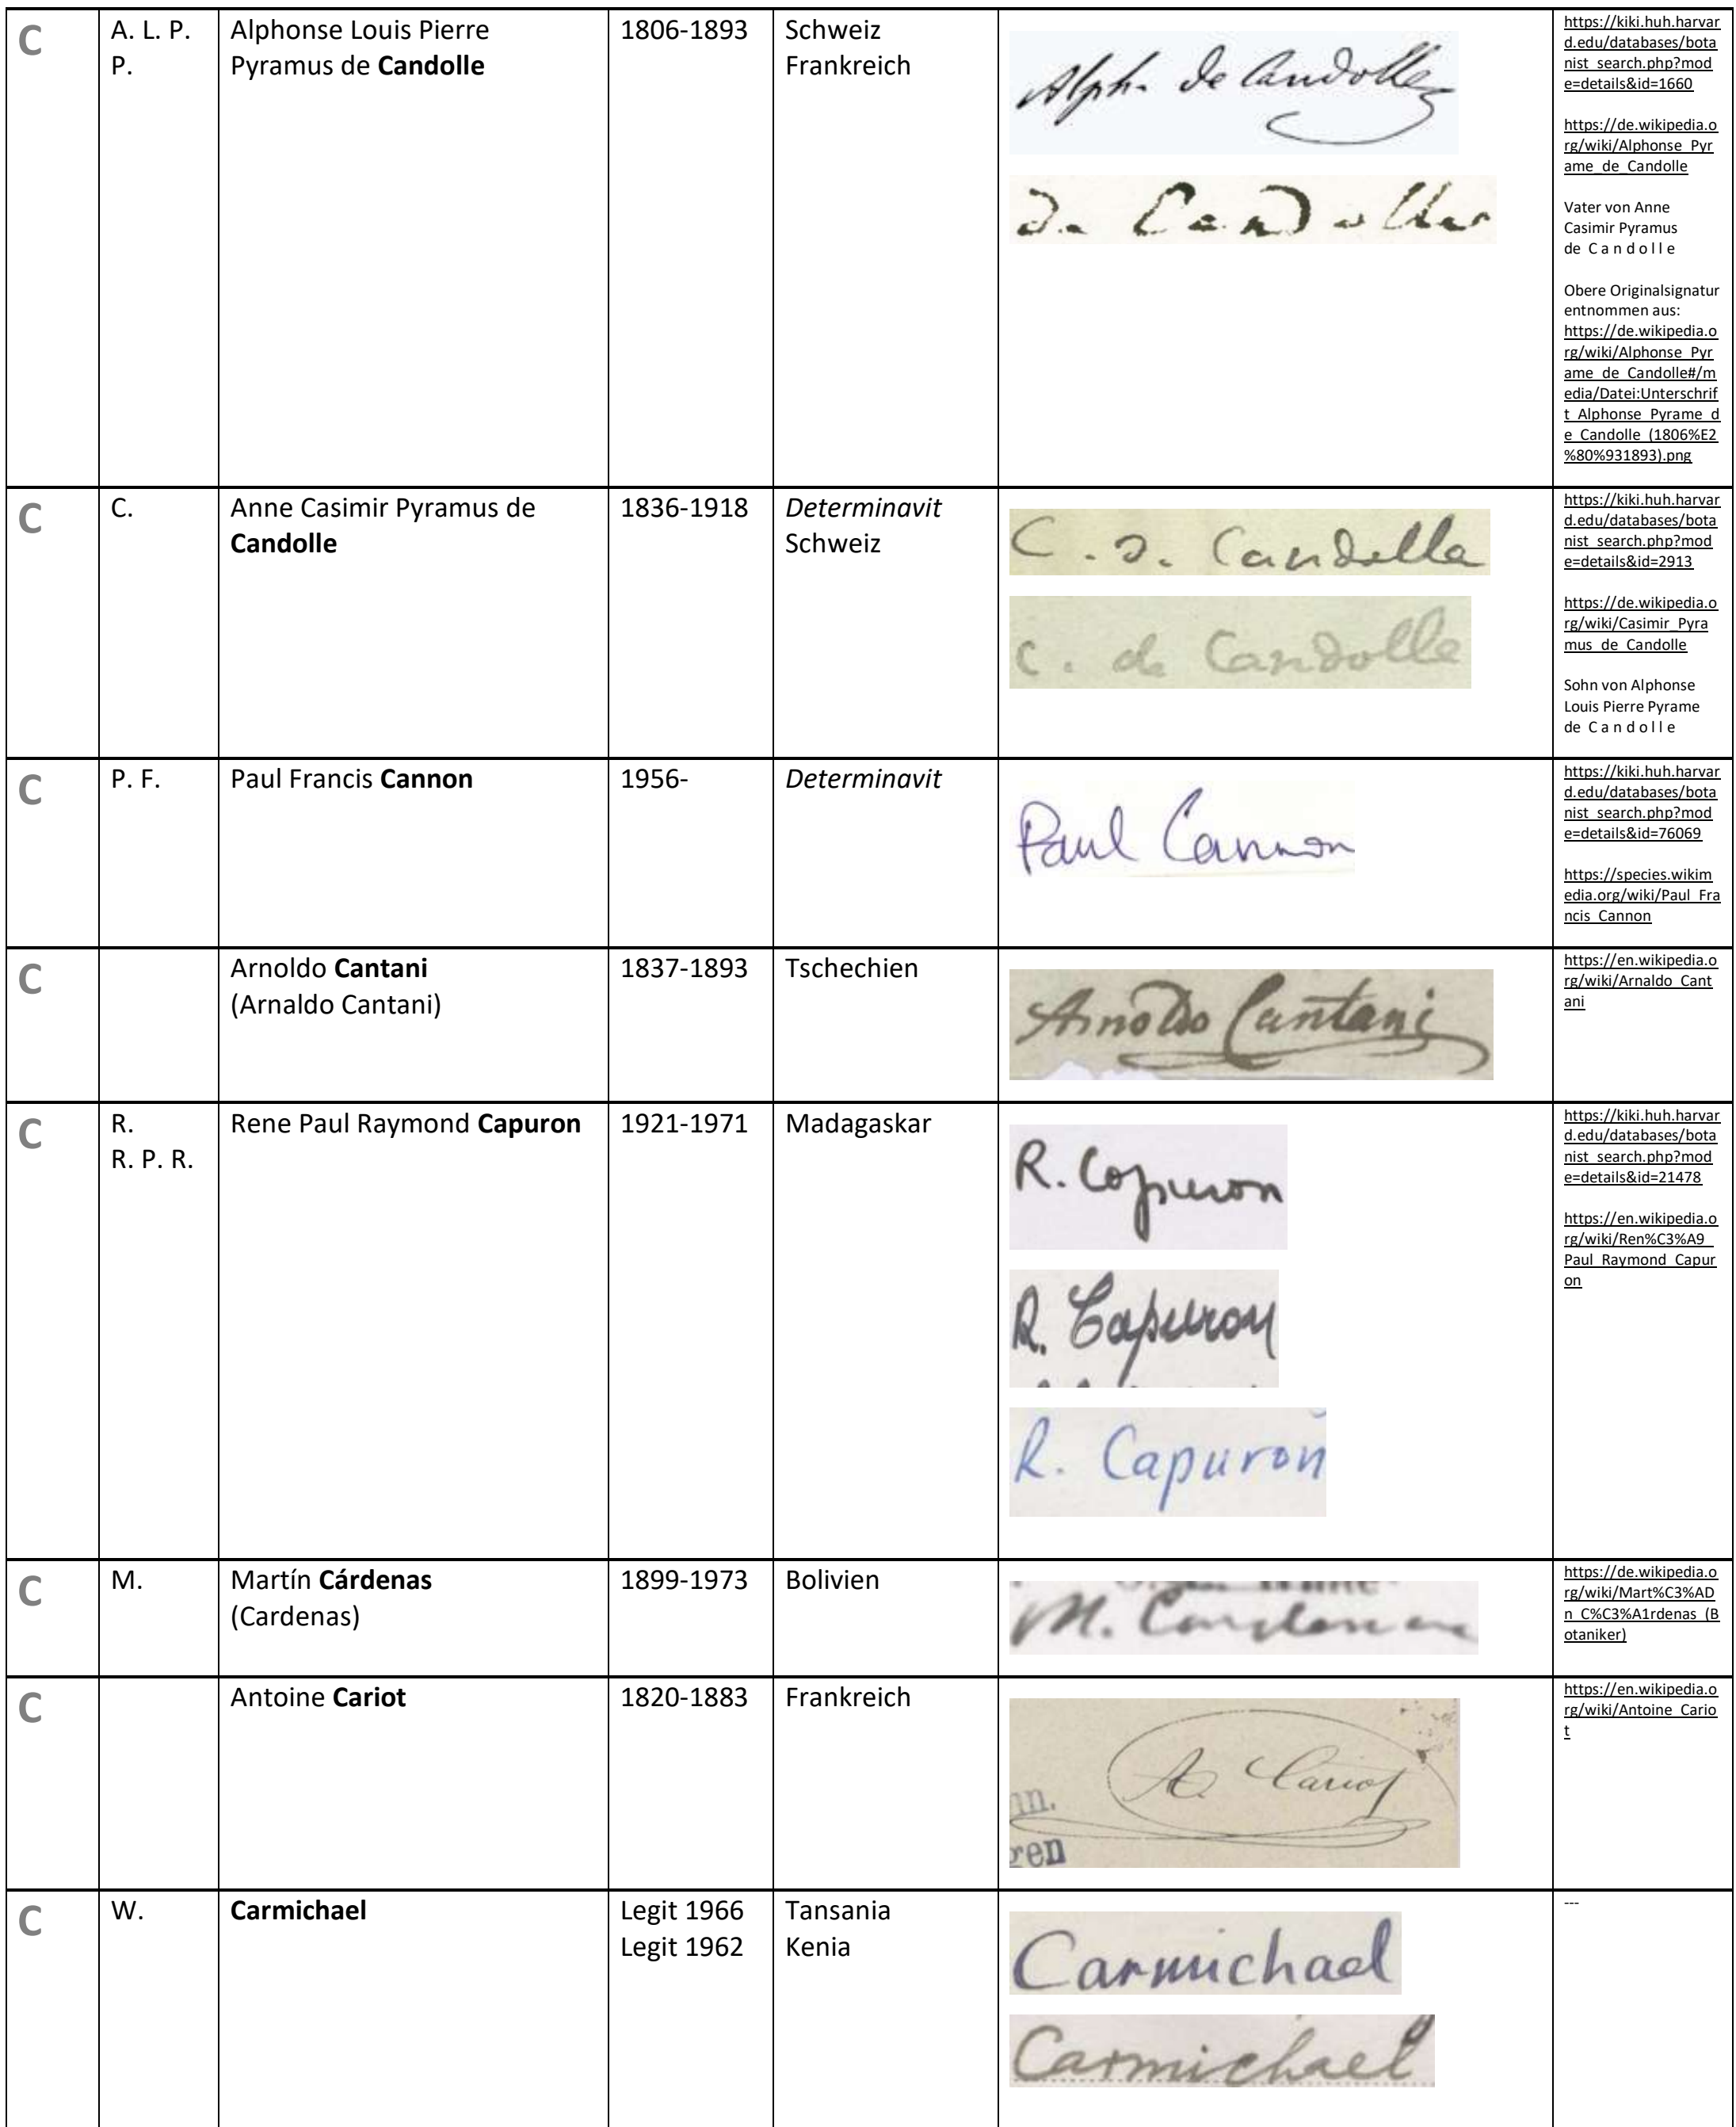 C
A. L. P.
P.
Alphonse Louis Pierre
Pyramus de Candolle
1806-1893
Schweiz
Frankreich
Alph. de Candolle
de Candolle
https://kiki.huh.harvar
d.edu/databases/bota
nist_search.php?mod
e=details&id=1660
https://de.wikipedia.o
rg/wiki/Alphonse_Pyr
ame_de_Candolle
Vater von Anne
Casimir Pyramus
de C a n d o l l e
Obere Originalsignatur
entnommen aus:
https://de.wikipedia.o
rg/wiki/Alphonse_Pyr
ame_de_Candolle#/m
edia/Datei:Unterschrif
t_Alphonse_Pyrame_d
e_Candolle_(1806%E2
%80%931893).png
C
C.
Anne Casimir Pyramus de
Candolle
1836-1918
Determinavit
Schweiz
C. d. Candolle
C. de Candolle
https://kiki.huh.harvar
d.edu/databases/bota
nist_search.php?mod
e=details&id=2913
https://de.wikipedia.o
rg/wiki/Casimir_Pyra
mus_de_Candolle
Sohn von Alphonse
Louis Pierre Pyrame
de C a n d o l l e
C
P. F.
Paul Francis Cannon
1956-
Determinavit
Paul Cannon
https://kiki.huh.harvar
d.edu/databases/bota
nist_search.php?mod
e=details&id=76069
https://species.wikim
edia.org/wiki/Paul_Fra
ncis_Cannon
C
Arnoldo Cantani
(Arnaldo Cantani)
1837-1893
Tschechien
Arnoldo Cantani
https://en.wikipedia.o
rg/wiki/Arnaldo_Cant
ani
C
R.
R. P. R.
Rene Paul Raymond Capuron
1921-1971
Madagaskar
R. Capuron
R. Capuron
R. Capuron
https://kiki.huh.harvar
d.edu/databases/bota
nist_search.php?mod
e=details&id=21478
https://en.wikipedia.o
rg/wiki/Ren%C3%A9_
Paul_Raymond_Capur
on
C
M.
Martín Cárdenas
(Cardenas)
1899-1973
Bolivien
M. Cardenas
https://de.wikipedia.o
rg/wiki/Mart%C3%AD
n_C%C3%A1rdenas_(B
otaniker)
C
Antoine Cariot
1820-1883
Frankreich
A. Cariot
nn.
gen
https://en.wikipedia.o
rg/wiki/Antoine_Cario
t
C
W.
Carmichael
Legit 1966
Legit 1962
Tansania
Kenia
Carmichael
Carmichael
---